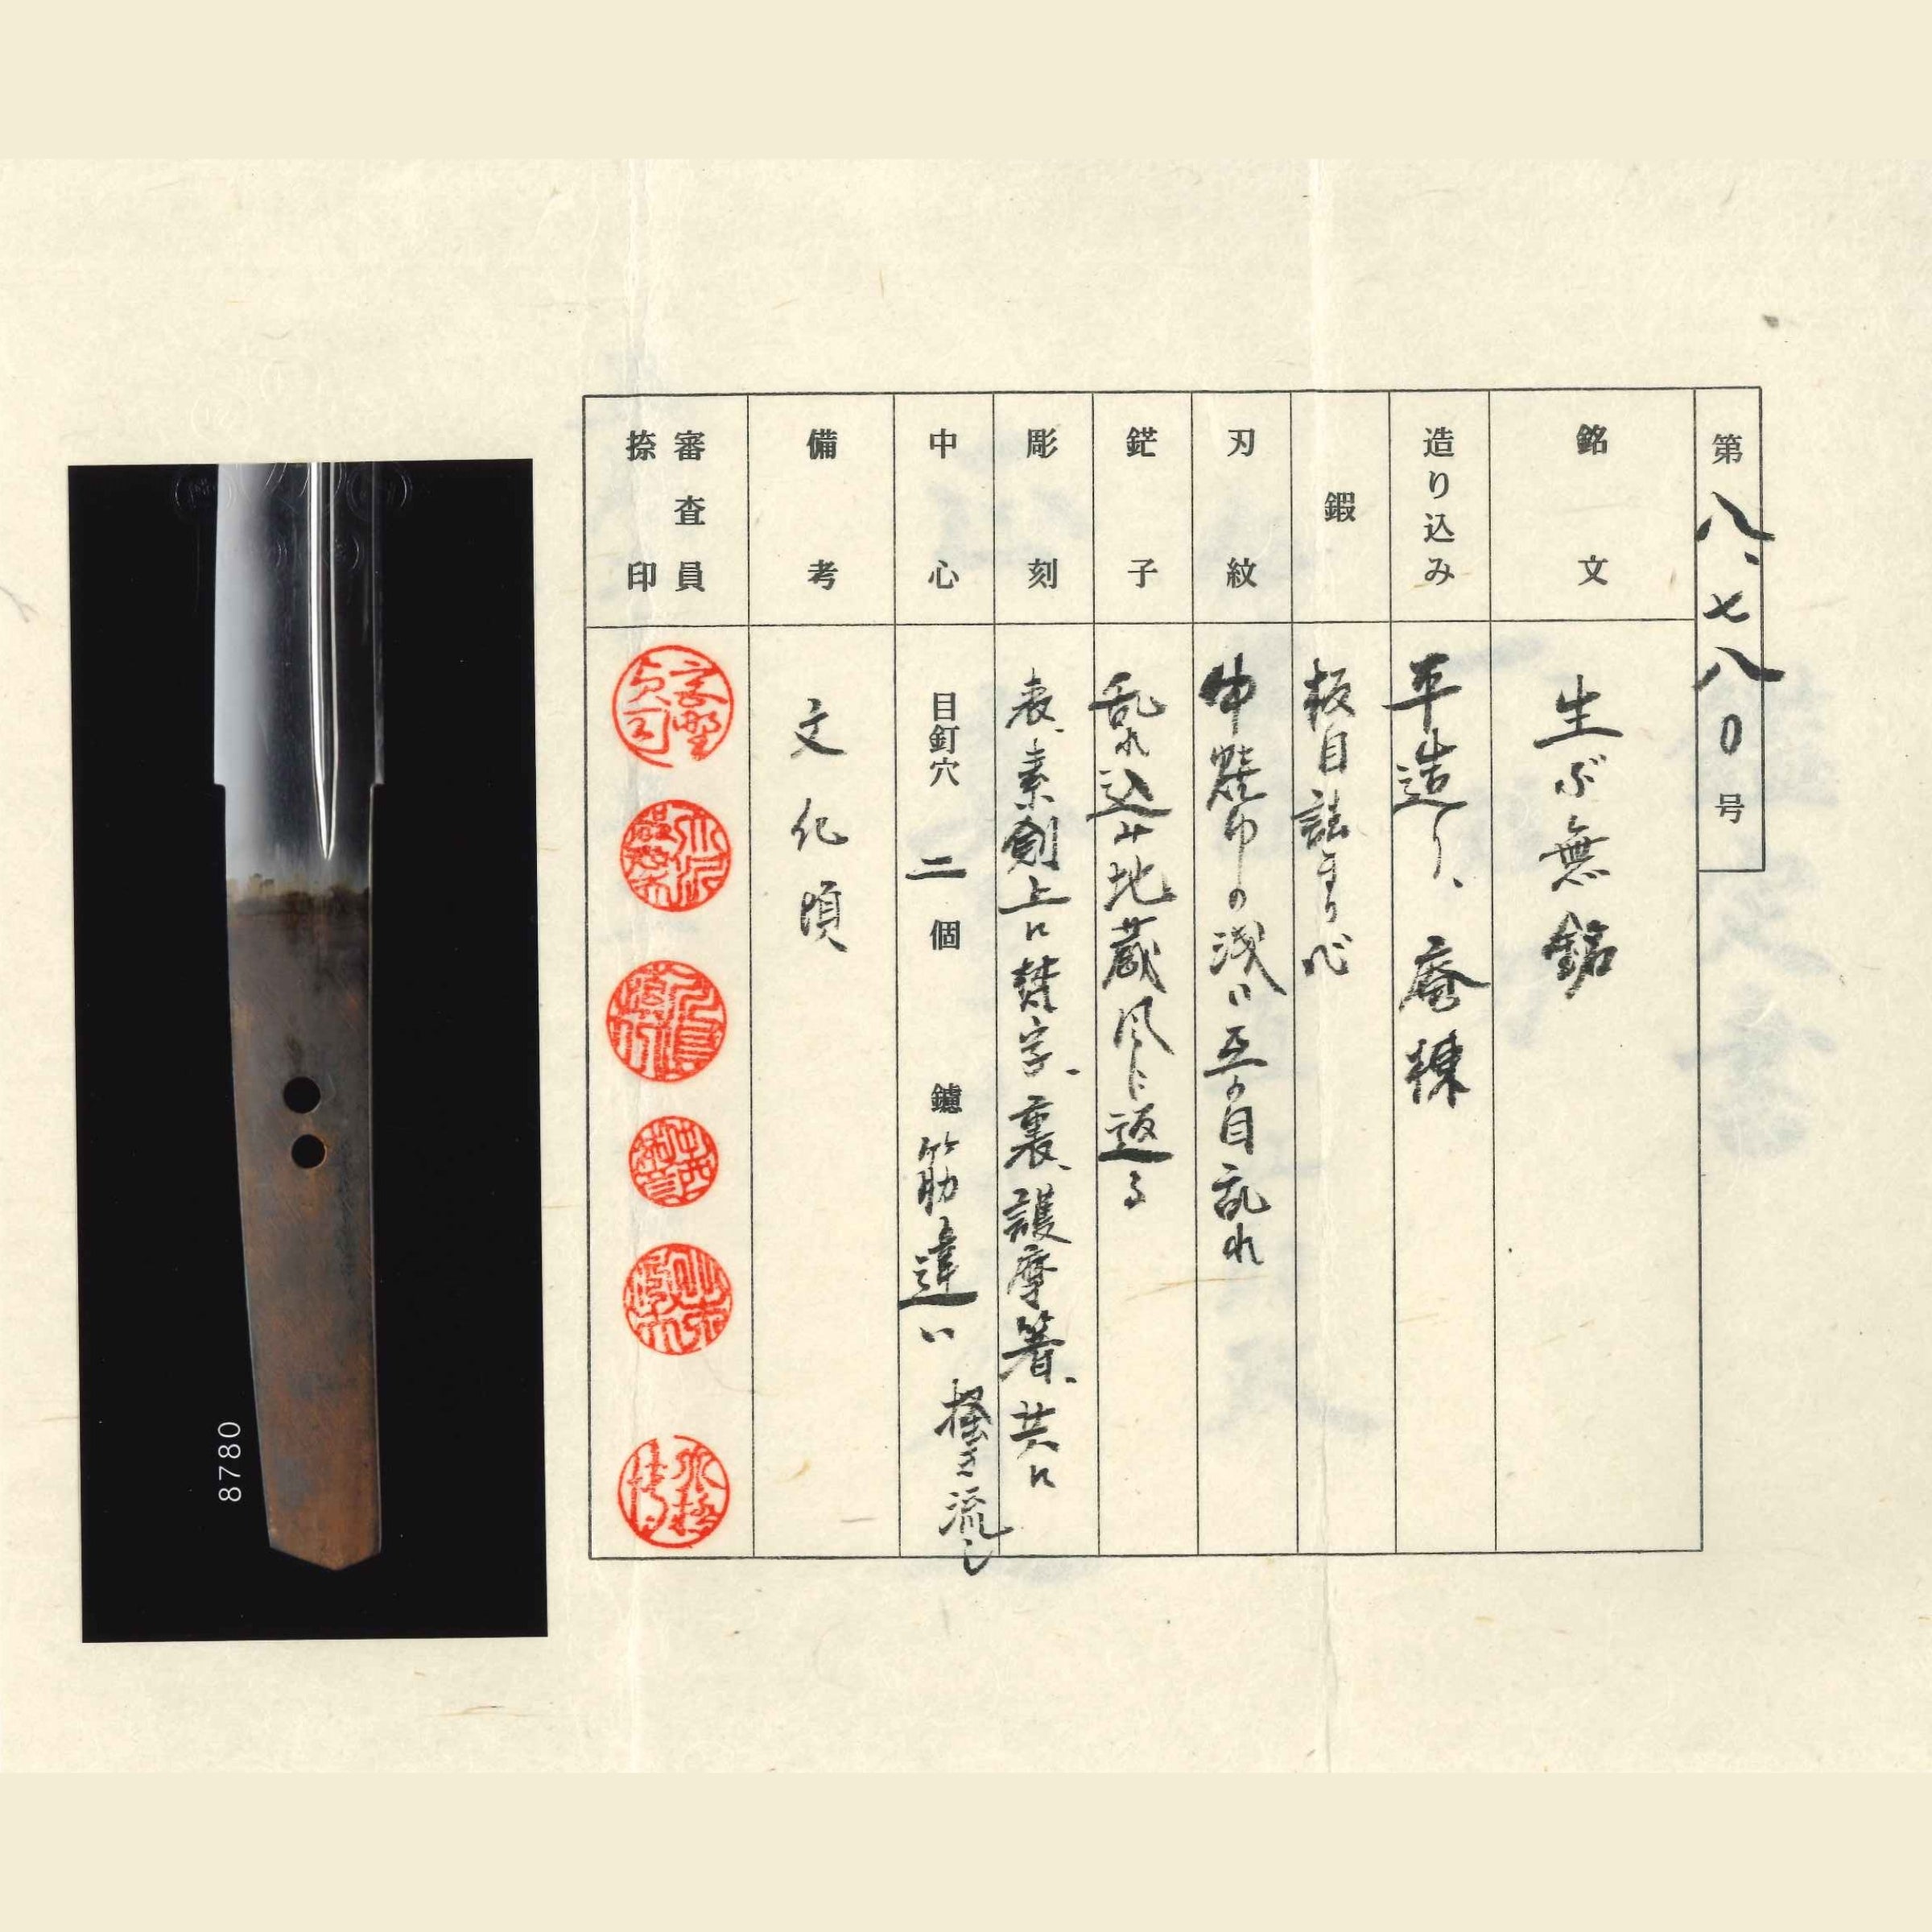 第八、七八〇号
銘文
生ぶ無銘
造り込み
平造り、庵棟
鍜
板目詰まり心
刃紋
中直刃の浅い互の目乱れ
鋩子
乱れ込み地蔵風に返る
彫刻
表、素剣上に梵字、裏、護摩箸、共に
掻き流し
中心
目釘穴 二 個 鑢 筋違い
備考
文化頃
審査員
捺印
8780